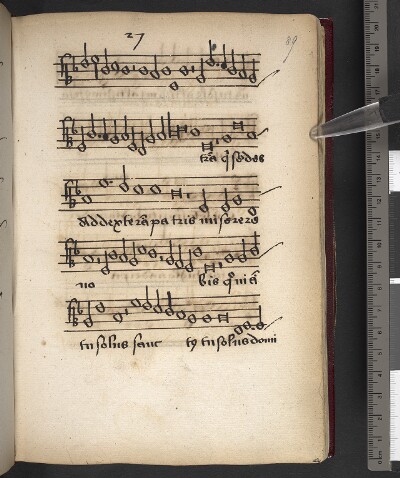 27
89
trã qͥ sedes
ad dexterã pa tris miserere
no bis qm̃
tu solus sanc ty tu solus domi